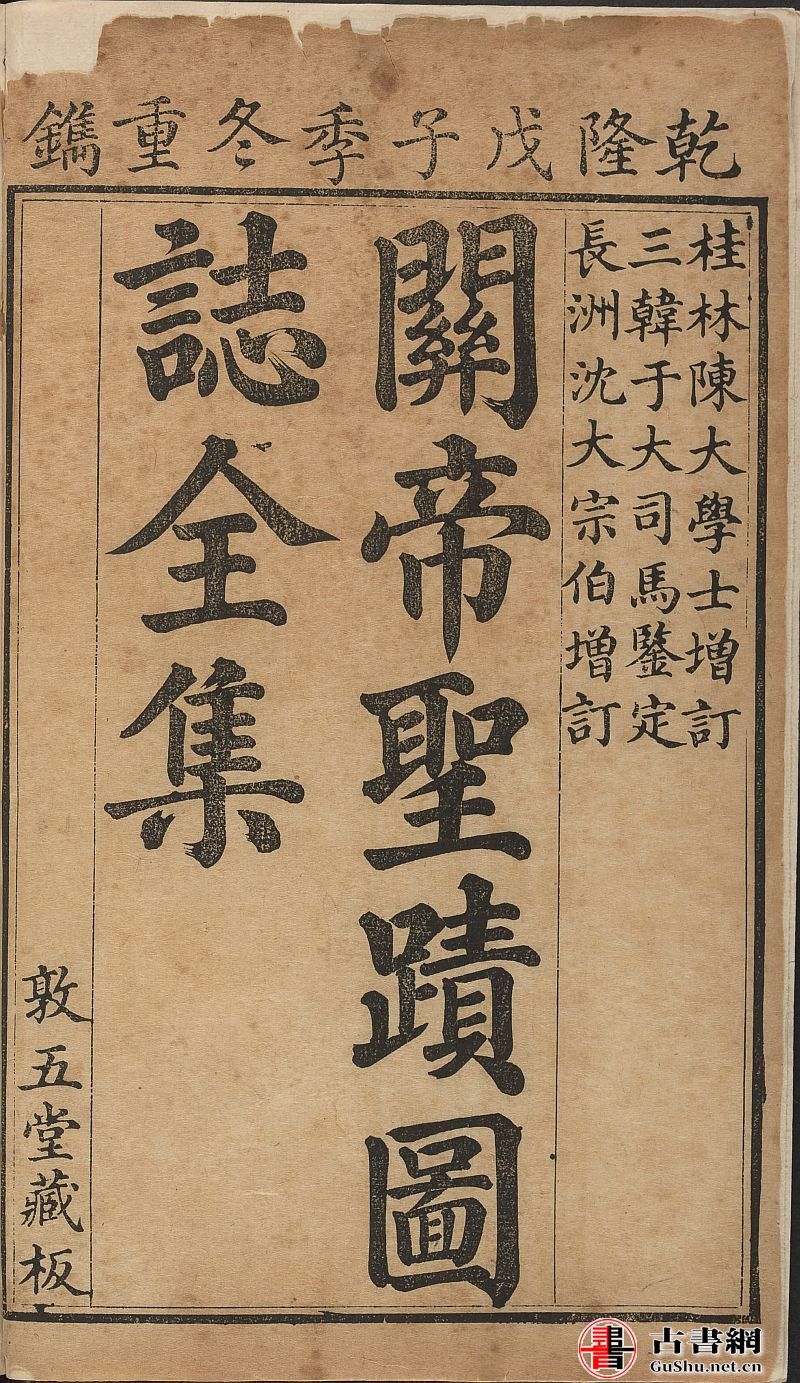 乾隆戊子季冬重鐫
桂林陳大學士增訂
三韓于大司馬鑒定
長洲沈大宗伯增訂
關帝聖蹟圖
誌全集
敦五堂藏板
古書網
GuShu.net.cn